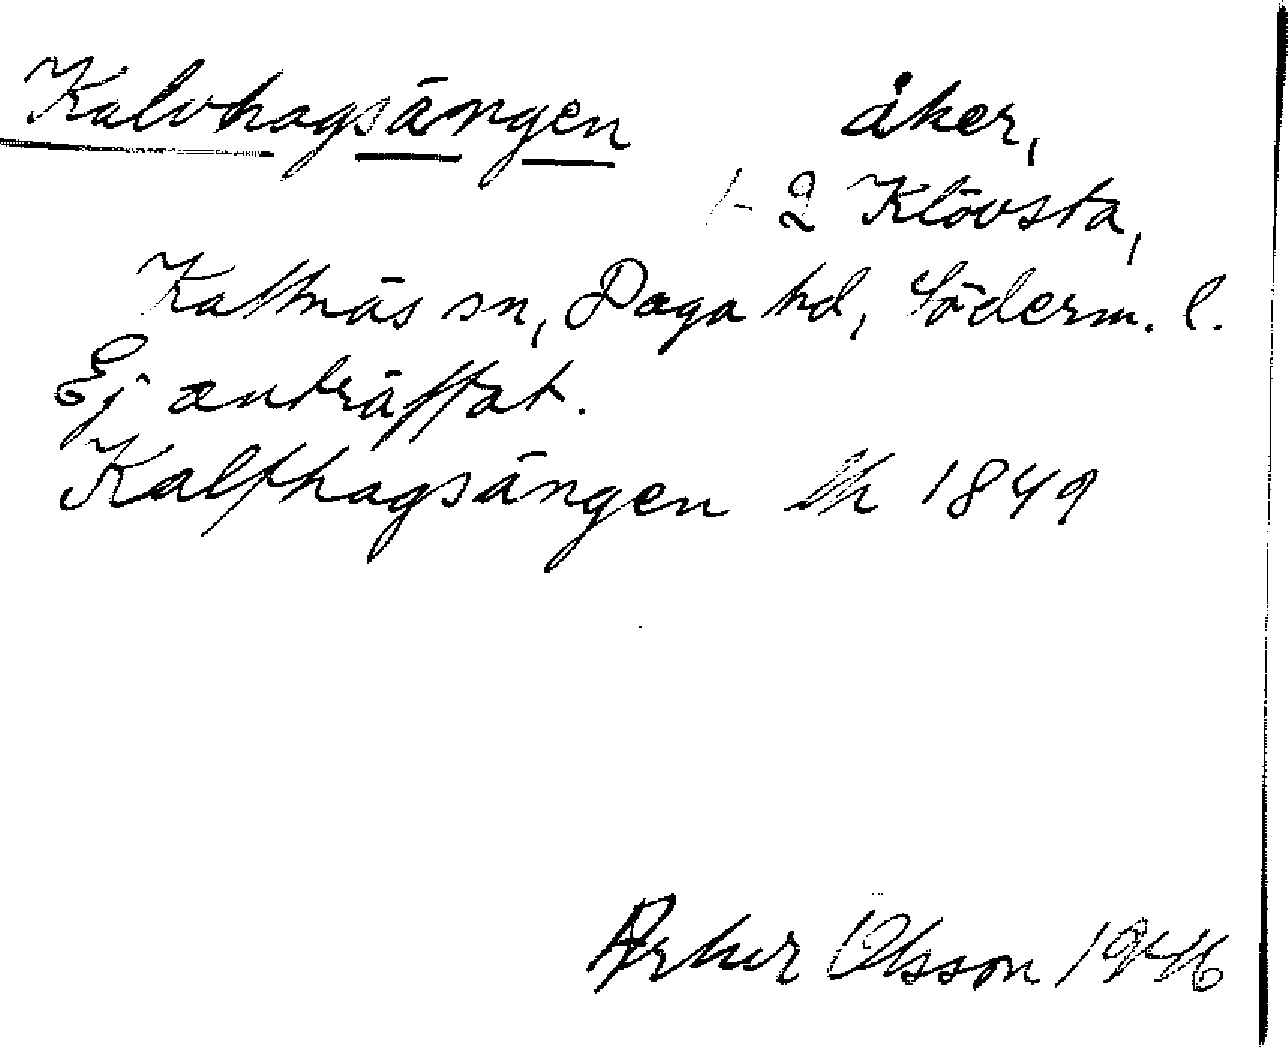 Kalvhagsängen åker,
1-2 Klövsta,
Kattnäs sn, Daga hd, Söderm. l.
Ej anträffat.
Kalfhagsängen Lk 1849
Olsson 1946